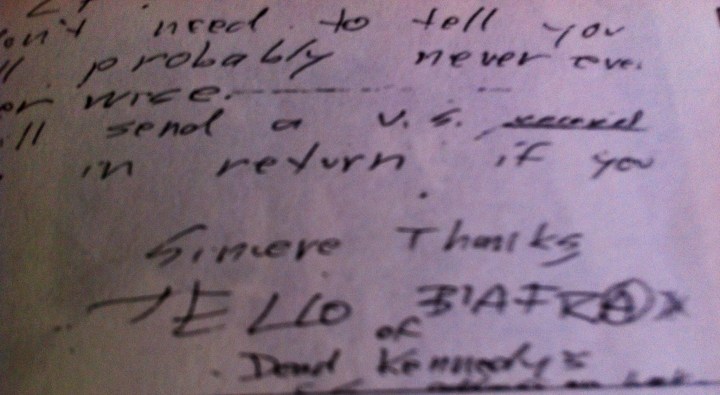 on't need to tell you
ll probably never eve
er wrce.
ll send a U.S. record
in return if you
Sincere Thanks
JELLO BIAFRA X
of
Dead Kennedys